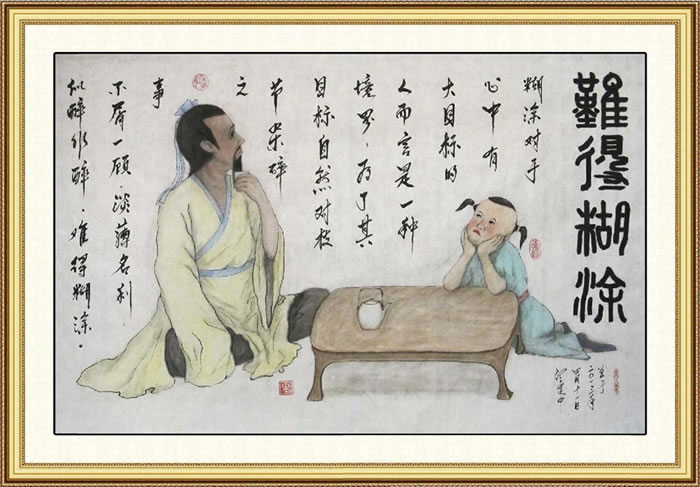 難得糊涂
糊涂对于
心中有
大目标的
人而言是一种
境界，为了其
目标自然对枝
节碎
之
事
不屑一顾，淡薄名利，
似醉非醉，难得糊涂。
四月十一日